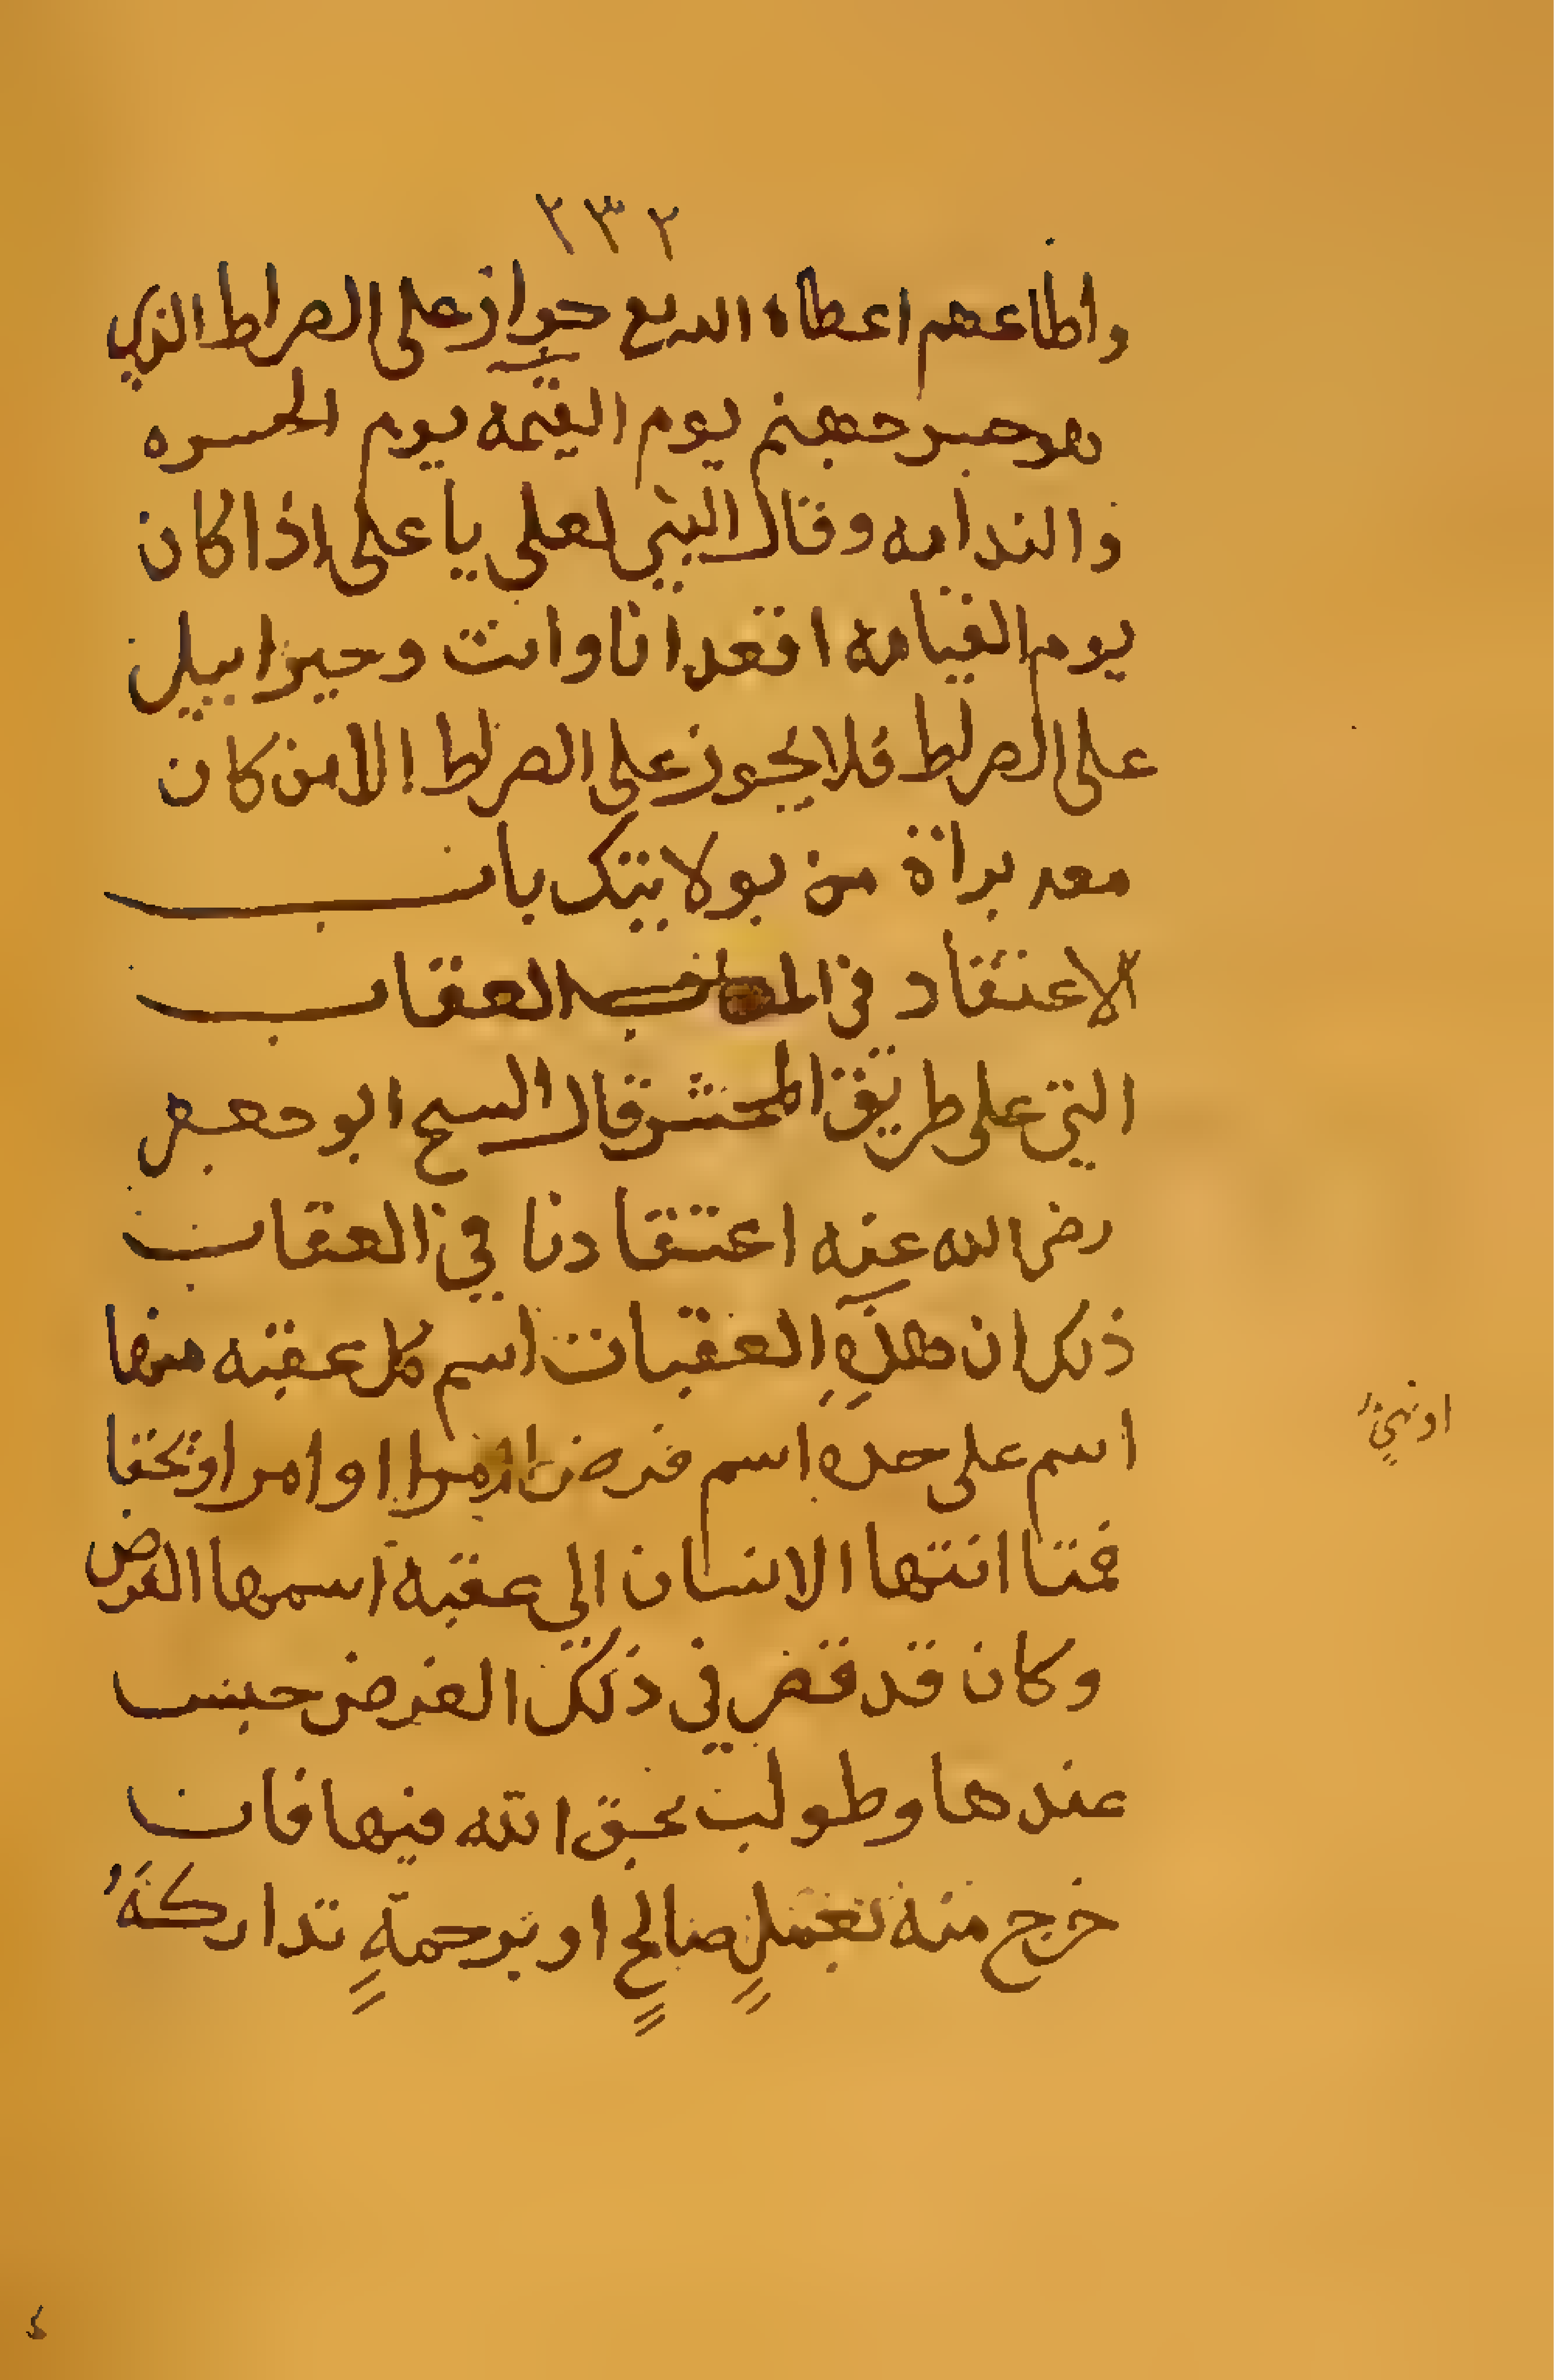 ٢٣٢
واطاعهم اعطاه الله مع جواز على الصراط الذي
هو جسر جهنم يوم القيمه يوم الحسره
والندامه وقال النبي لعلي يا علي اذا كان
يوم القيامه اقعد انا وانت وجبرايل
على الصراط فلا يجوز على الصراط الا من كان
معه براة من بولايتك باب
الاعتقاد في العقاب
التي على طريق المحشر قال الشيخ ابو جعفر
رضى الله عنه اعتقادنا في العقاب
ذلك ان هذه العقبات اسم كل عقبه منها
اسم على حده اسم فرض او امر او
فمتا انتها الانسان الى عقبه اسمها الفرض
وكان قد قصر في ذلك الفرض حبس
عندها وطولب بحق الله فيها فان
خرج منه بعملٍ صالحٍ او برحمةٍ تداركهُ
او نهي